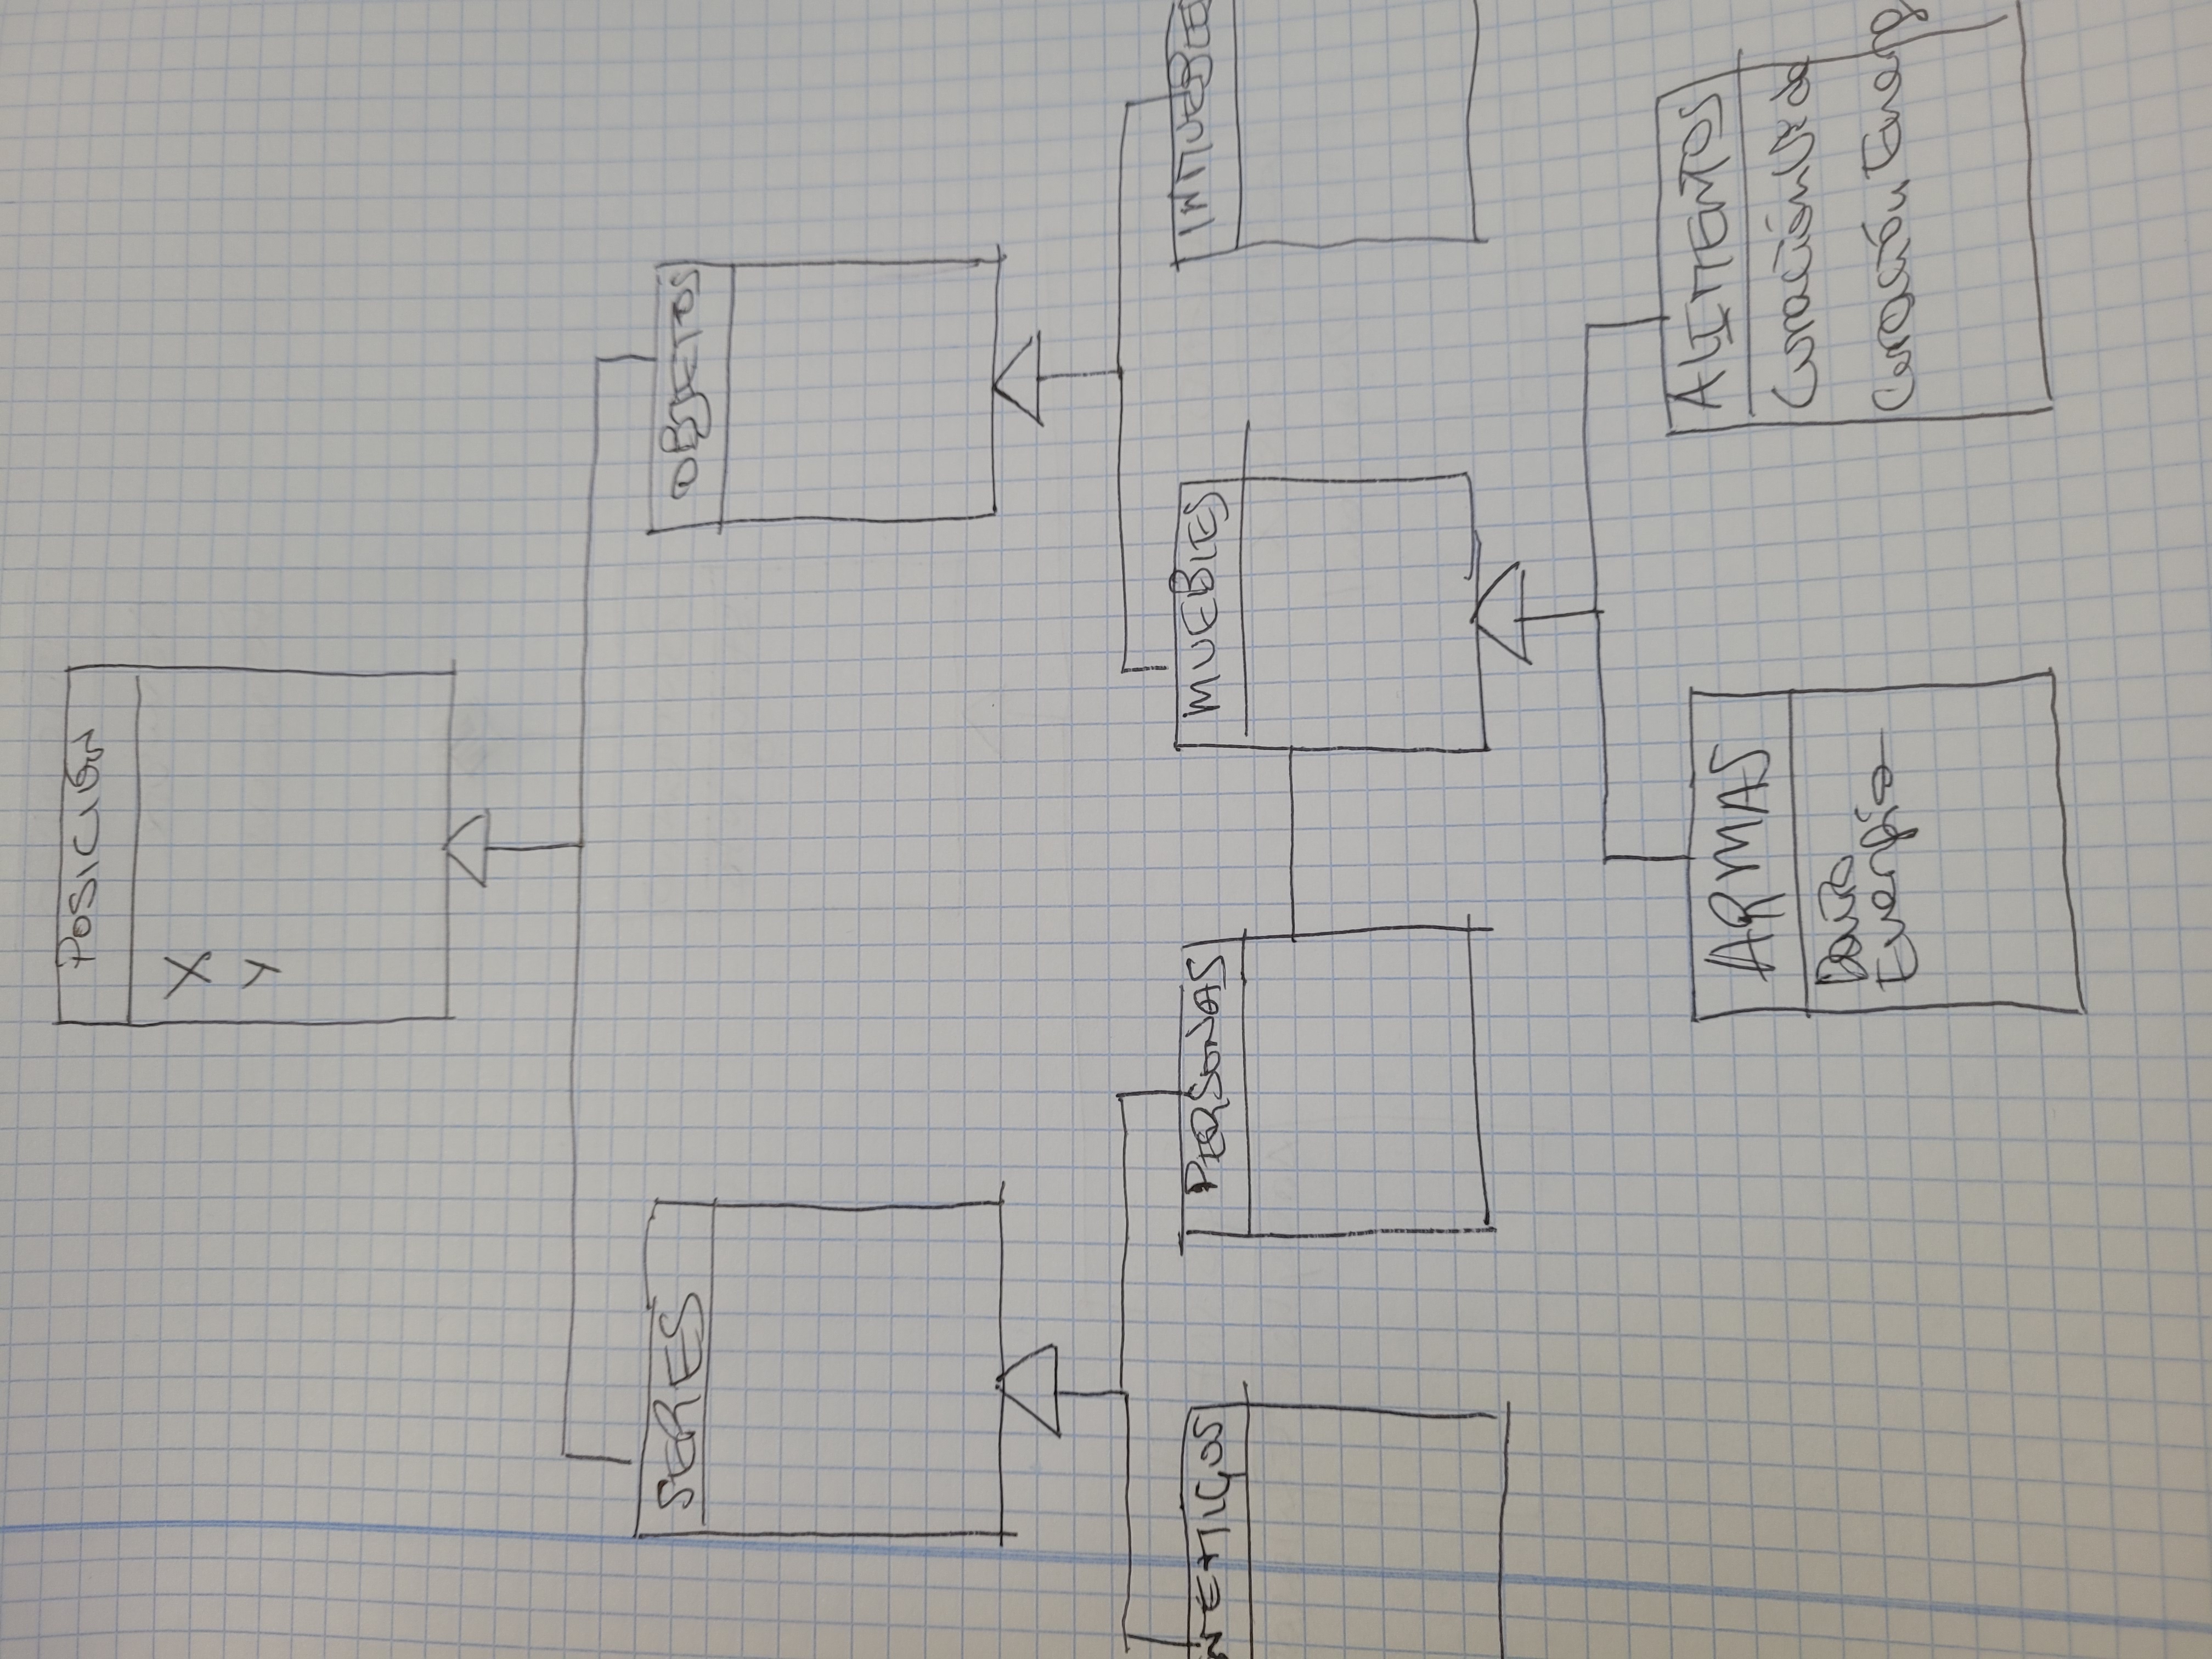 POSICIÓN
X
Y
SERES
OBJETOS
NEMIGOS
PERSONAS
MUEBLES
INMUEBLES
ARMAS
Daño
Energía
ALIMENTOS
Curación Vida
Curación Energ